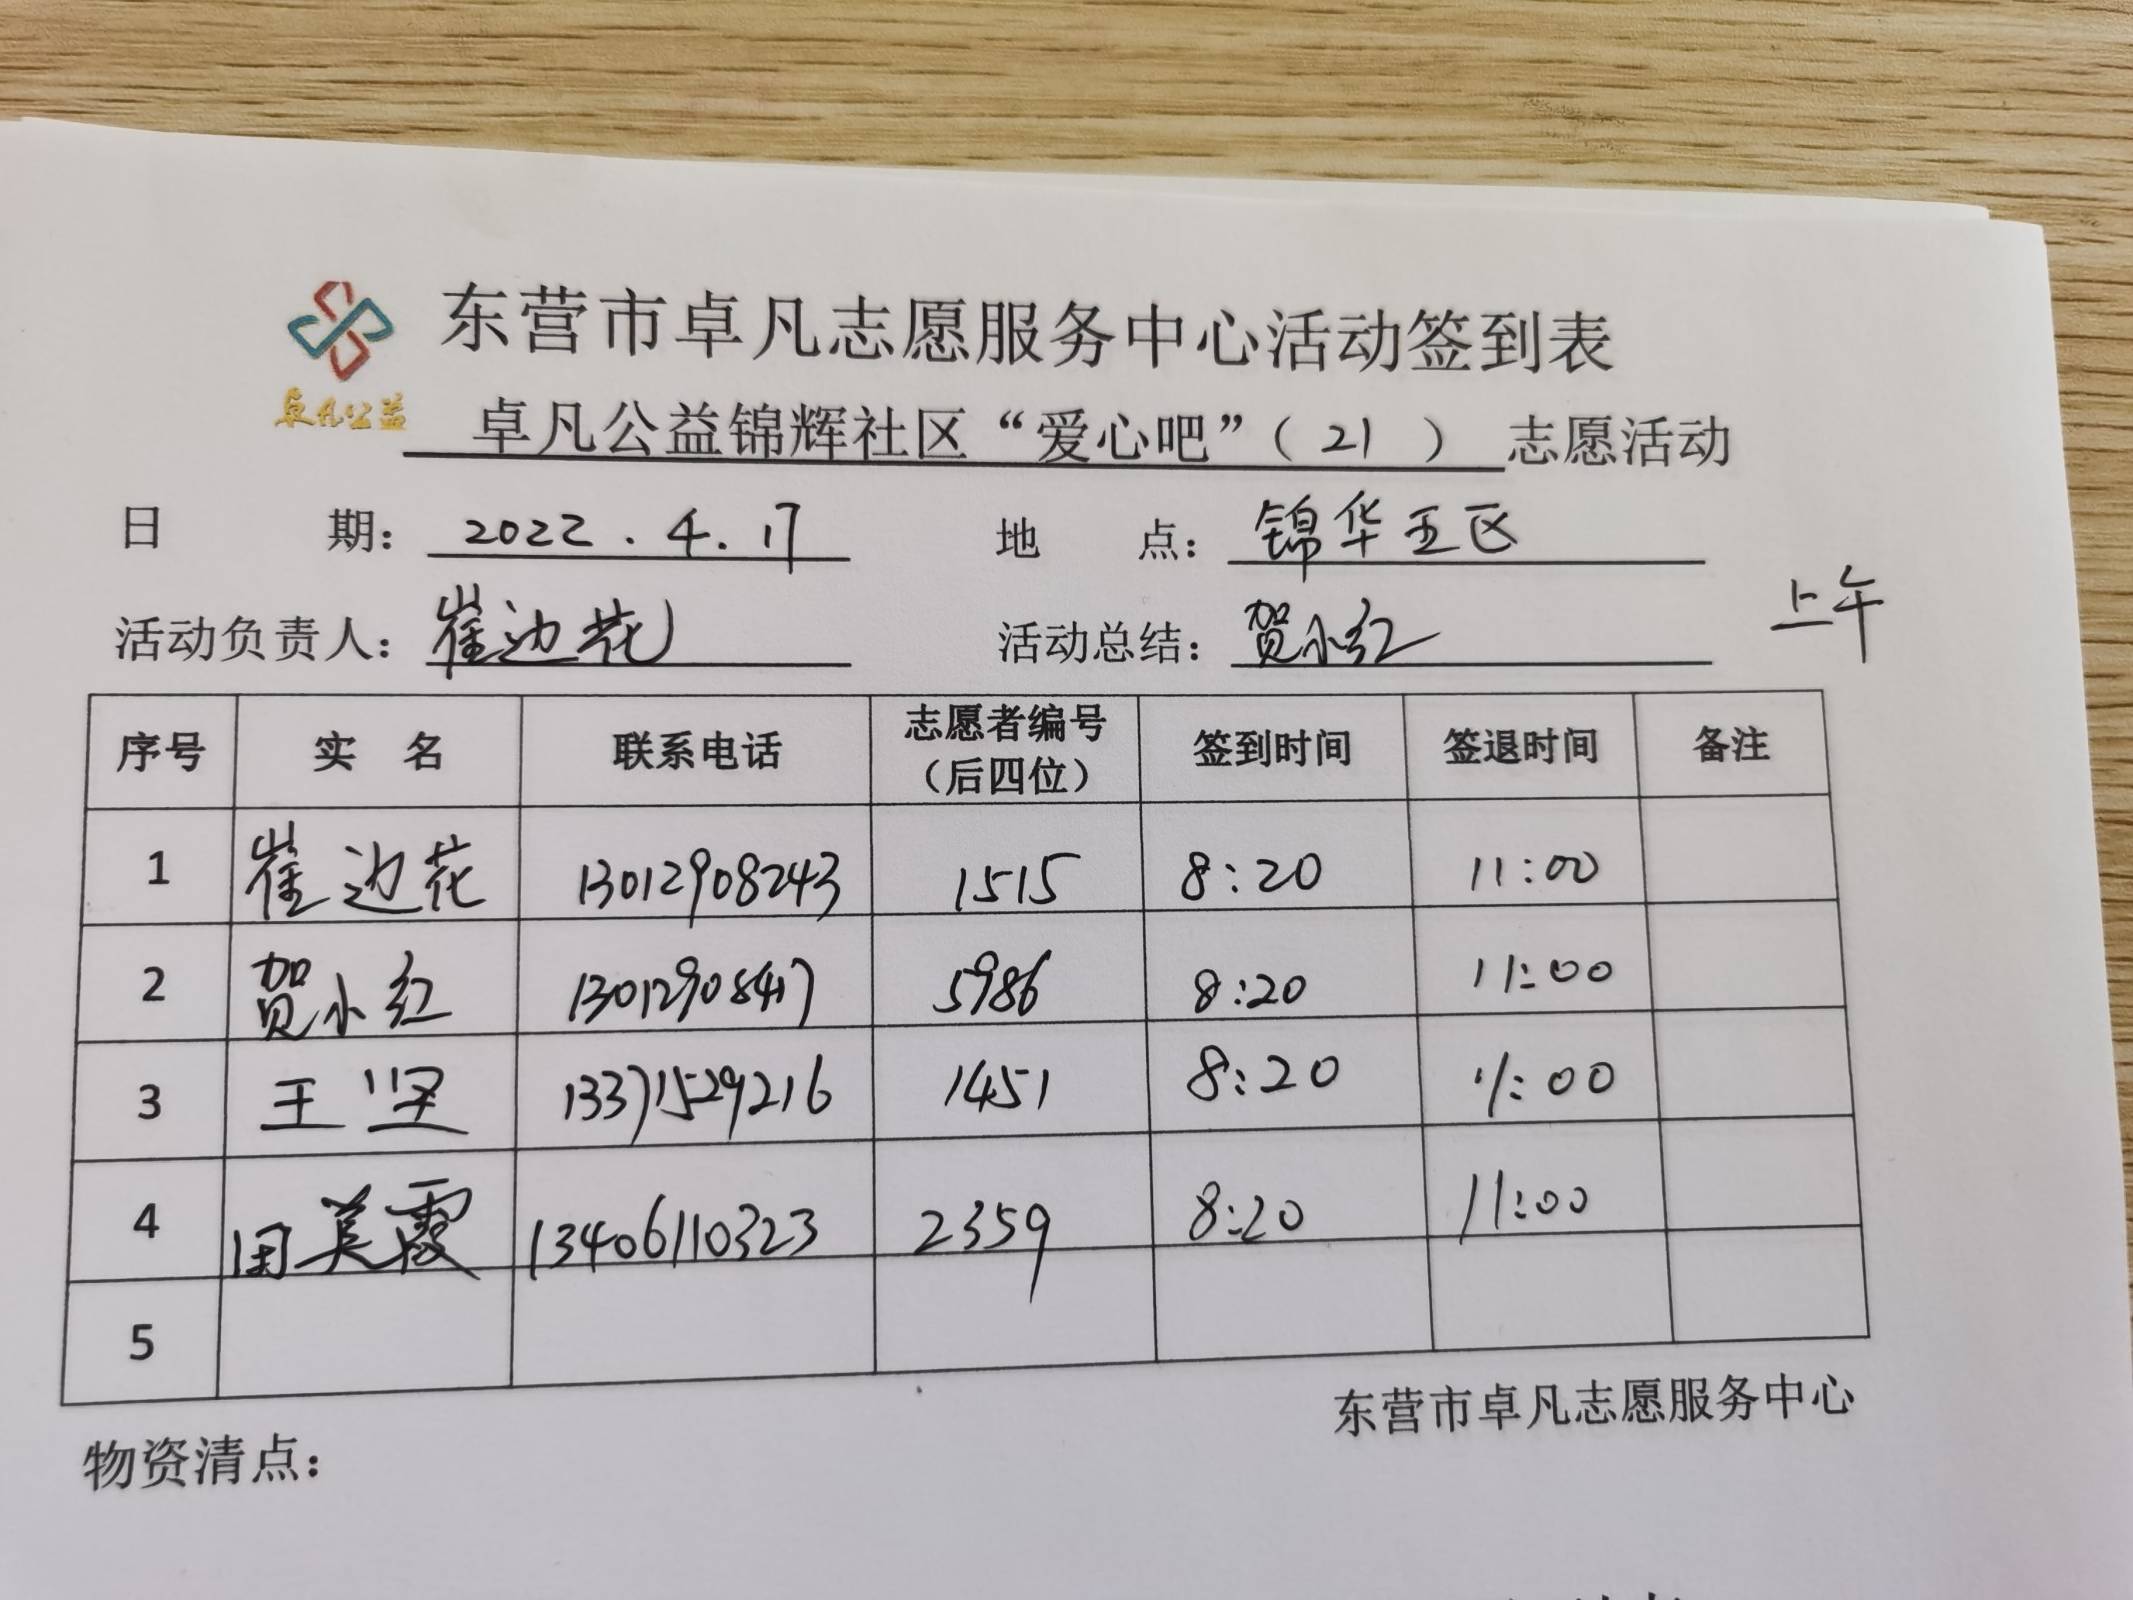 东营市卓凡志愿服务中心活动签到表
卓凡公益
卓凡公益锦辉社区“爱心吧”（ 21 ） 志愿活动
日 期： 2022.4.17 地 点： 锦华五区
上午
活动负责人： 崔边花 活动总结： 贺小红
序号 实 名 联系电话 志愿者编号（后四位） 签到时间 签退时间 备注
1 崔边花 13012908243 1515 8:20 11:00
2 贺小红 13012908417 5986 8:20 11:00
3 王坚 13371529216 1451 8:20 11:00
4 美霞 13406110323 2359 8:20 11:00
5
东营市卓凡志愿服务中心
物资清点：